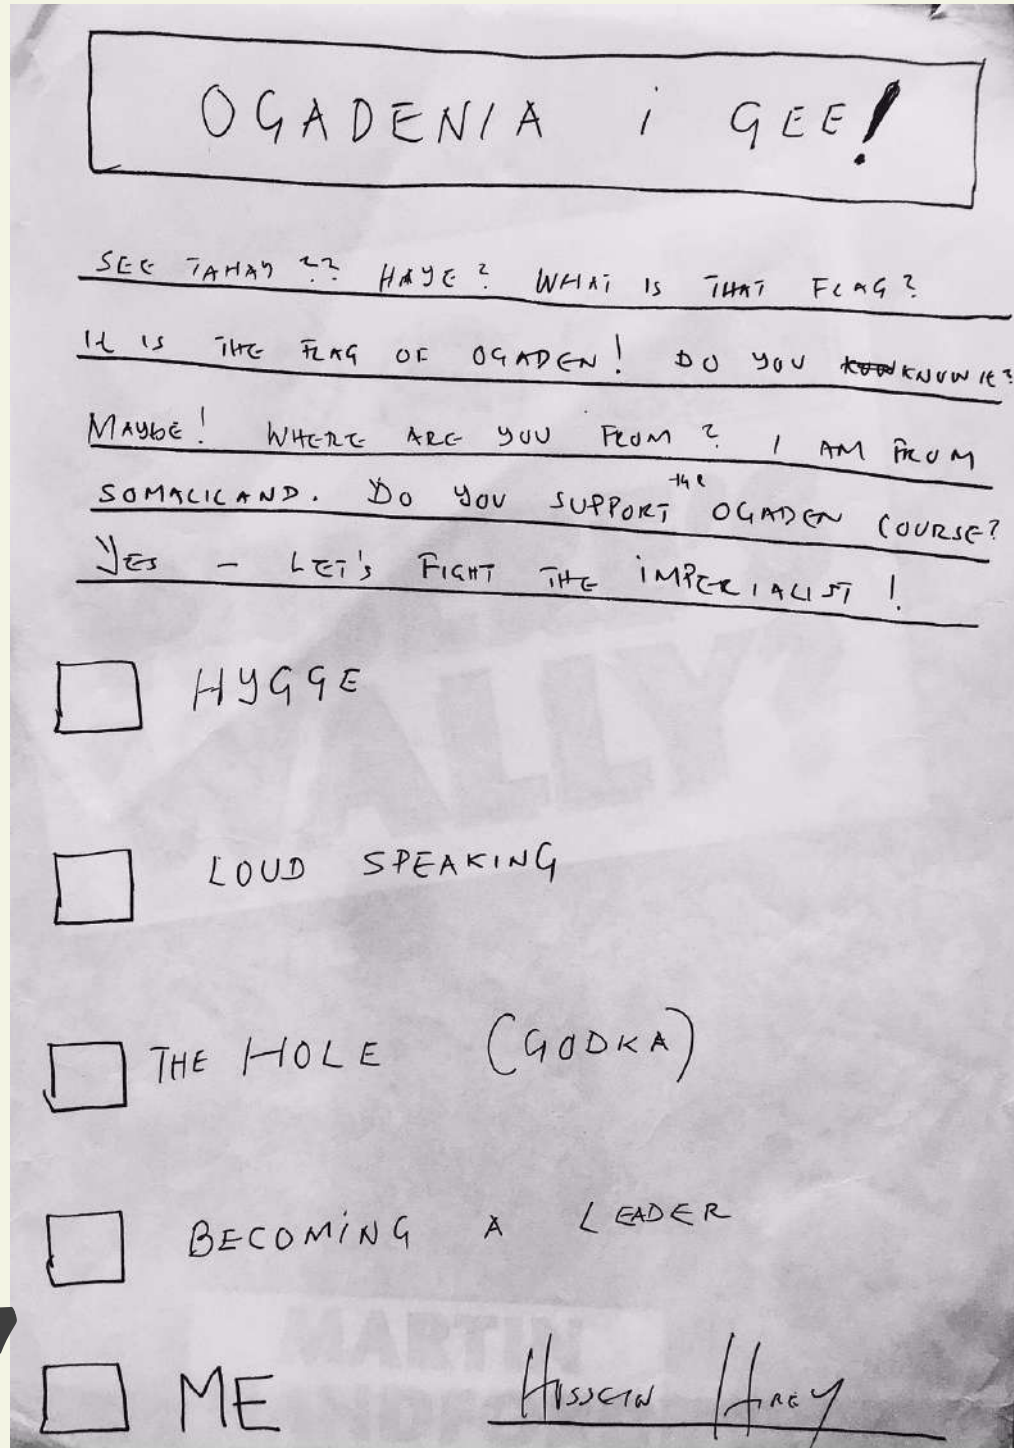 OGADENIA i GEE!
SEE TAHAY ?? HAYE? WHAT IS THAT FLAG?
It IS THE FLAG OF OGADEN! DO YOU KNOW It?
MAYBE! WHERE ARE YOU FROM? I AM FROM
SOMALILAND. DO YOU SUPPORT the OGADEN COURSE?
YES – LET'S FIGHT THE IMPERIALIST!
HYGGE
LOUD SPEAKING
THE HOLE (GODKA)
BECOMING A LEADER
ME HUSSEIN HIREY
MARTIN